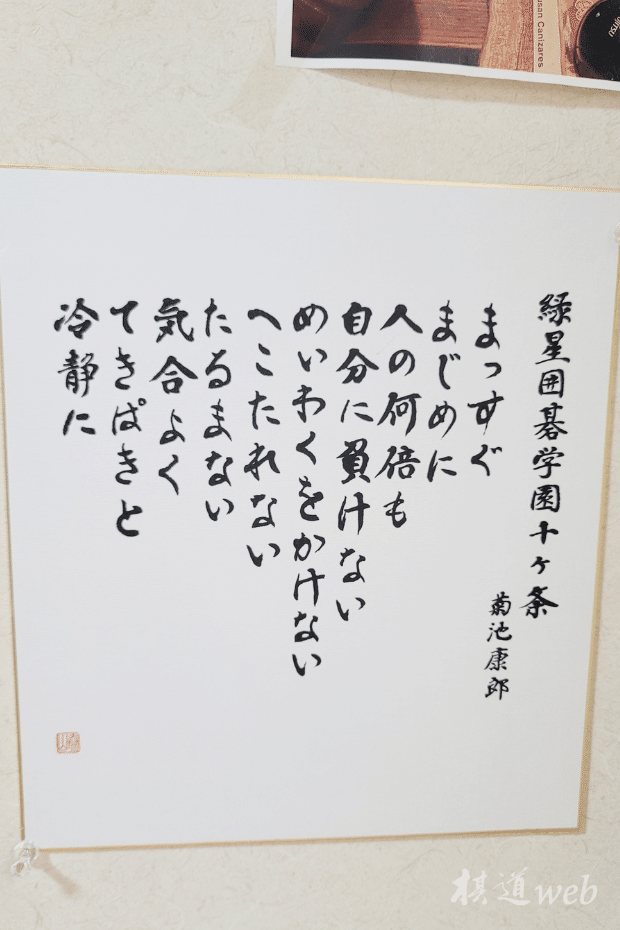 緑星囲碁学園十ヶ条
菊池康郎
まっすぐ
まじめに
人の何倍も
自分に負けない
めいわくをかけない
へこたれない
たるまない
気合よく
てきぱきと
冷静に
usan Canizares
棋道web